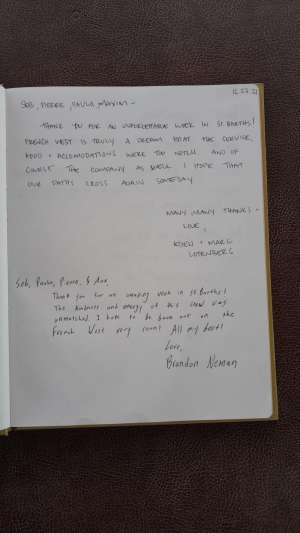 12.27.22
SEB, PIERRE, PAULA, MAXIM -
THANK YOU FOR AN UNFORGETTABLE WEEK IN ST. BARTHS!
FRENCH WEST IS TRULY A DREAM BOAT. THE SERVICE,
FOOD + ACCOMODATIONS WERE TOP NOTCH. AND OF
COURSE THE COMPANY AS WELL! I HOPE THAT
OUR PATHS CROSS AGAIN SOMEDAY.
MANY, MANY THANKS -
LOVE,
+ MARC
Seb, Paula, Pierre, &
Thank you for an amazing week in St. Barths!
The kindness and energy of this crew was
unmatched. I hope to be back out on the
French West very soon! All my best!
Love,
Brandon Neman